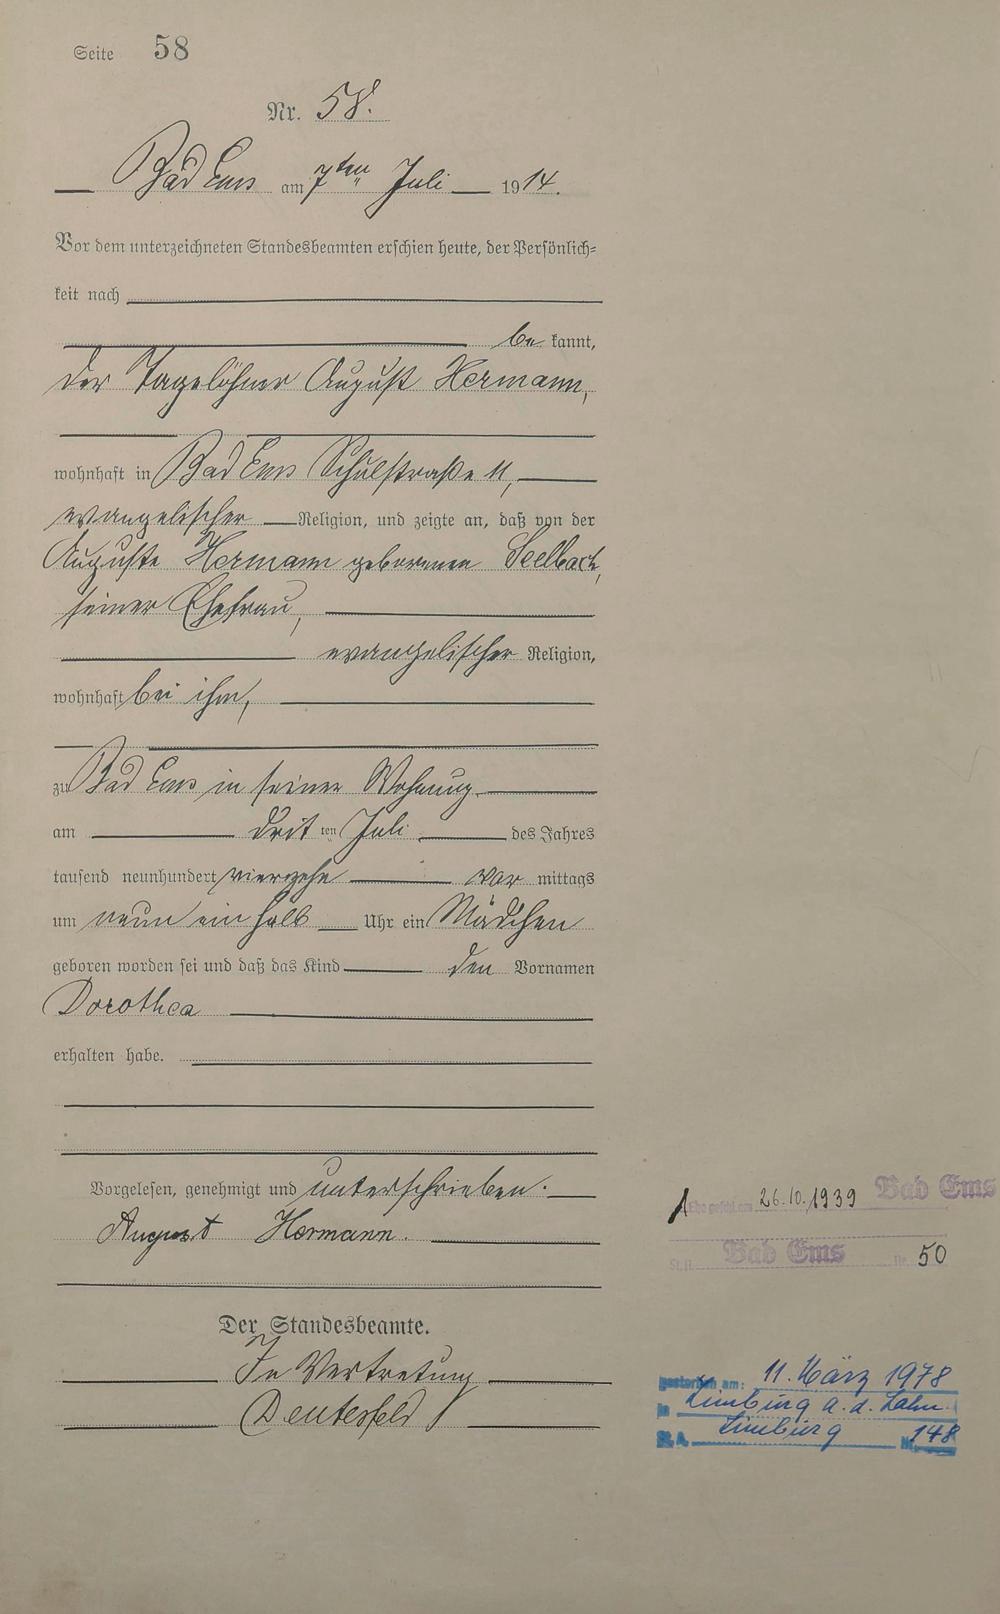 Seite 58
Nr. 58.
Bad Ems am 7ten Juli 1914.
Vor dem unterzeichneten Standesbeamten erschien heute, der Persönlich-
keit nach
be kannt,
der Tagelöhner August Hermann,
wohnhaft in Bad Ems Schulstraße 11,
evangelischer Religion, und zeigte an, daß von der
Auguste Hermann geborenen Seelbach,
seiner Ehefrau,
evangelischer Religion,
wohnhaft bei ihm,
zu Bad Ems in seiner Wohnung
am drit ten Juli des Jahres
tausend neunhundert vierzehn vor mittags
um neun ein halb Uhr ein Mädchen
geboren worden sei und daß das Kind den Vornamen
Dorothea
erhalten habe.
Vorgelesen, genehmigt und unterschrieben.
August Hermann.
Der Standesbeamte.
In Vertretung
Deutesfeld
1 Ehe geschl. am 26.10.1939 Bad Ems
St.A. Bad Ems Nr. 50
gestorben am: 11. März 1978
in Limburg a. d. Lahn
St. A. Limburg Nr. 148